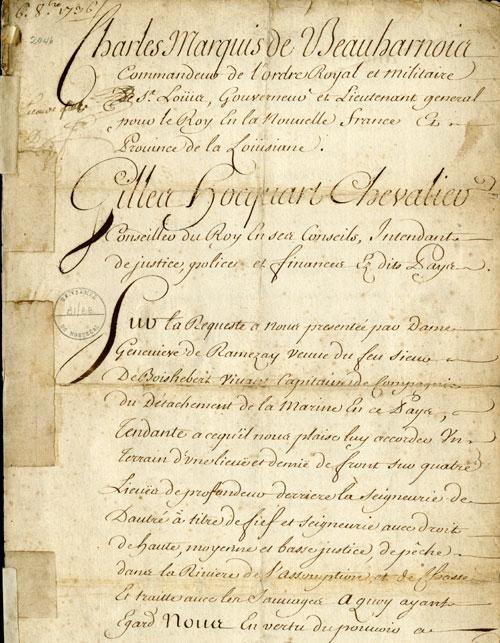 6. 8.bre 1736
2046
Charles Marquis de Beauharnois
Commandeur de l'ordre Royal et militaire
de St. Loüis, Gouverneur et Lieutenant general
pour le Roy En la Nouvelle france Et
Province de la Loüisiane.
Gilles Hocquart Chevalier
Conseiller du Roy En ses Conseils, Intendant
de justice, police, et finances Es dits Pays.
Sur la Requeste a nous presentée par Dame
Genevieve de Ramezay veuve du feu sieur
De Boishebert vivant Capitaine de Compagnie
du Detachement de la Marine En ce Pays,
Tendante a cequ'il nous plaise luy accorder Un
Terrain d'une lieuë et demie de front sur quatre
Lieuës de profondeur derriere la seigneurie de
Dautré à titre de fief et seigneurie avec droit
de haute, moyenne et basse justice de pêche
dans la Riviere de l'Assomption et de Chasse
Et traitte avec les Sauvages A quoy ayant
Egard Nous En vertu du pouvoir a